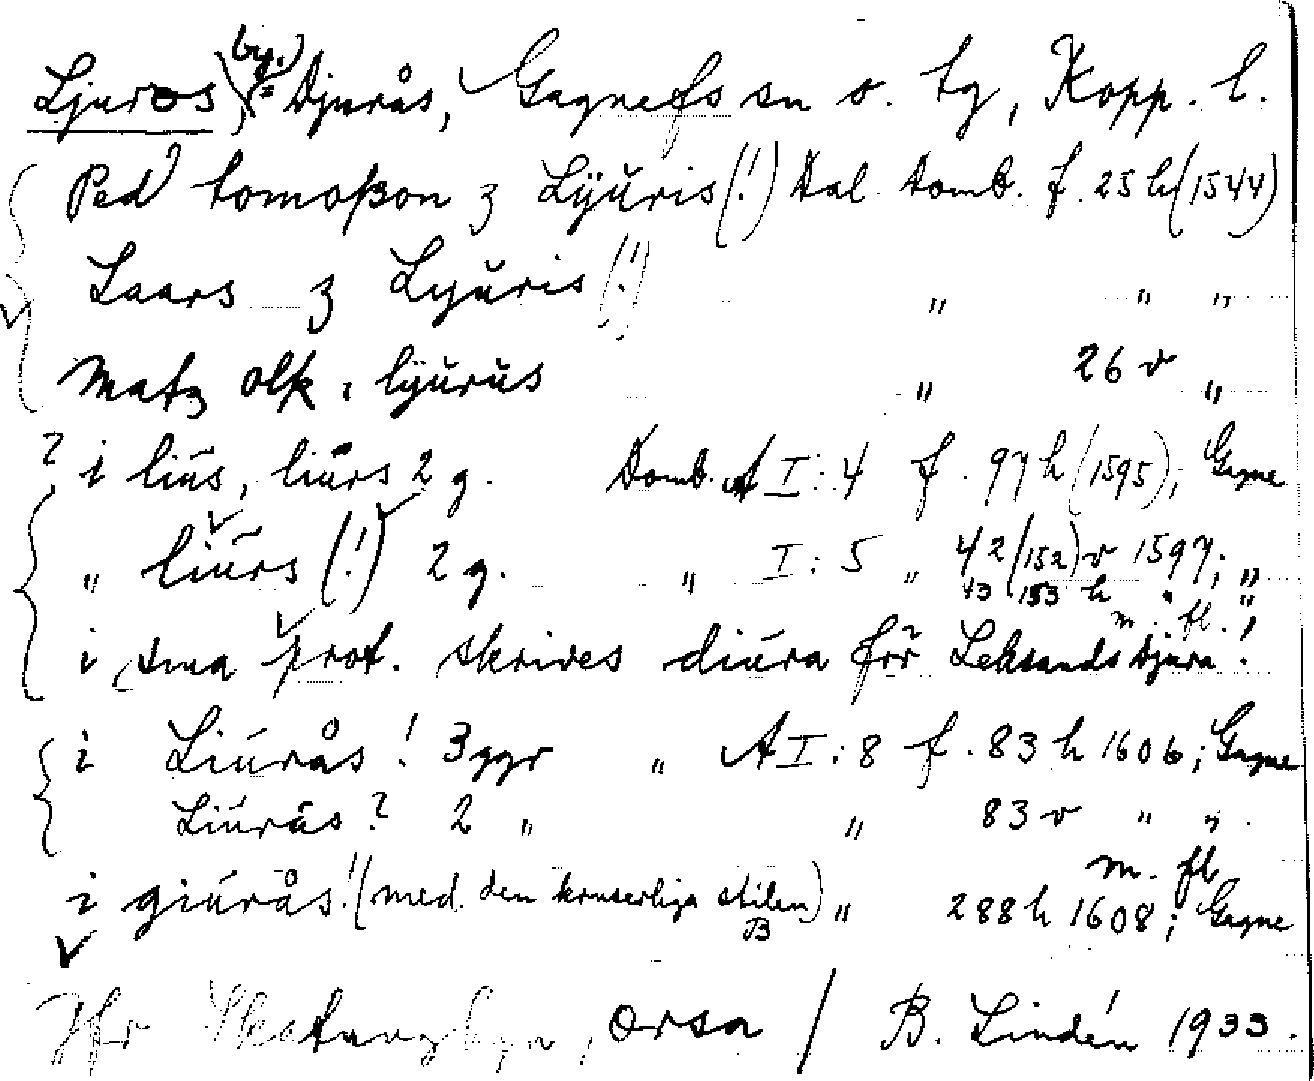 Ljuros, by. = Djurås, Gagnefs sn o. tg, Kopp. l.
Ped tomoßon ʒ Lÿŭris (!) Dal. Domb. f. 25 h (1544)
Laars ʒ Lyŭris (!) " " "
Matʒ olß. i lÿŭrŭs " 26 v "
? i liús, liurs 2 g. Domb. A I:4 f. 97 h (1595); Gagne
" liúrs (!) 2 g. " I:5 " 42 (152) v 1597; "
43 153 h " "
m. fl.
i sma prot. skrives diúra för Leksands Djura!
i Liúrås! 3 ggr " A I:8 f. 83 h 1606; Gagne
Liúrås? 2 " " 83 v " ".
m. fl.
i giúrås! (med den konserliga stilen) " 288 h 1608; Gagne
B
Jfr , Orsa / B. Lindén 1933.